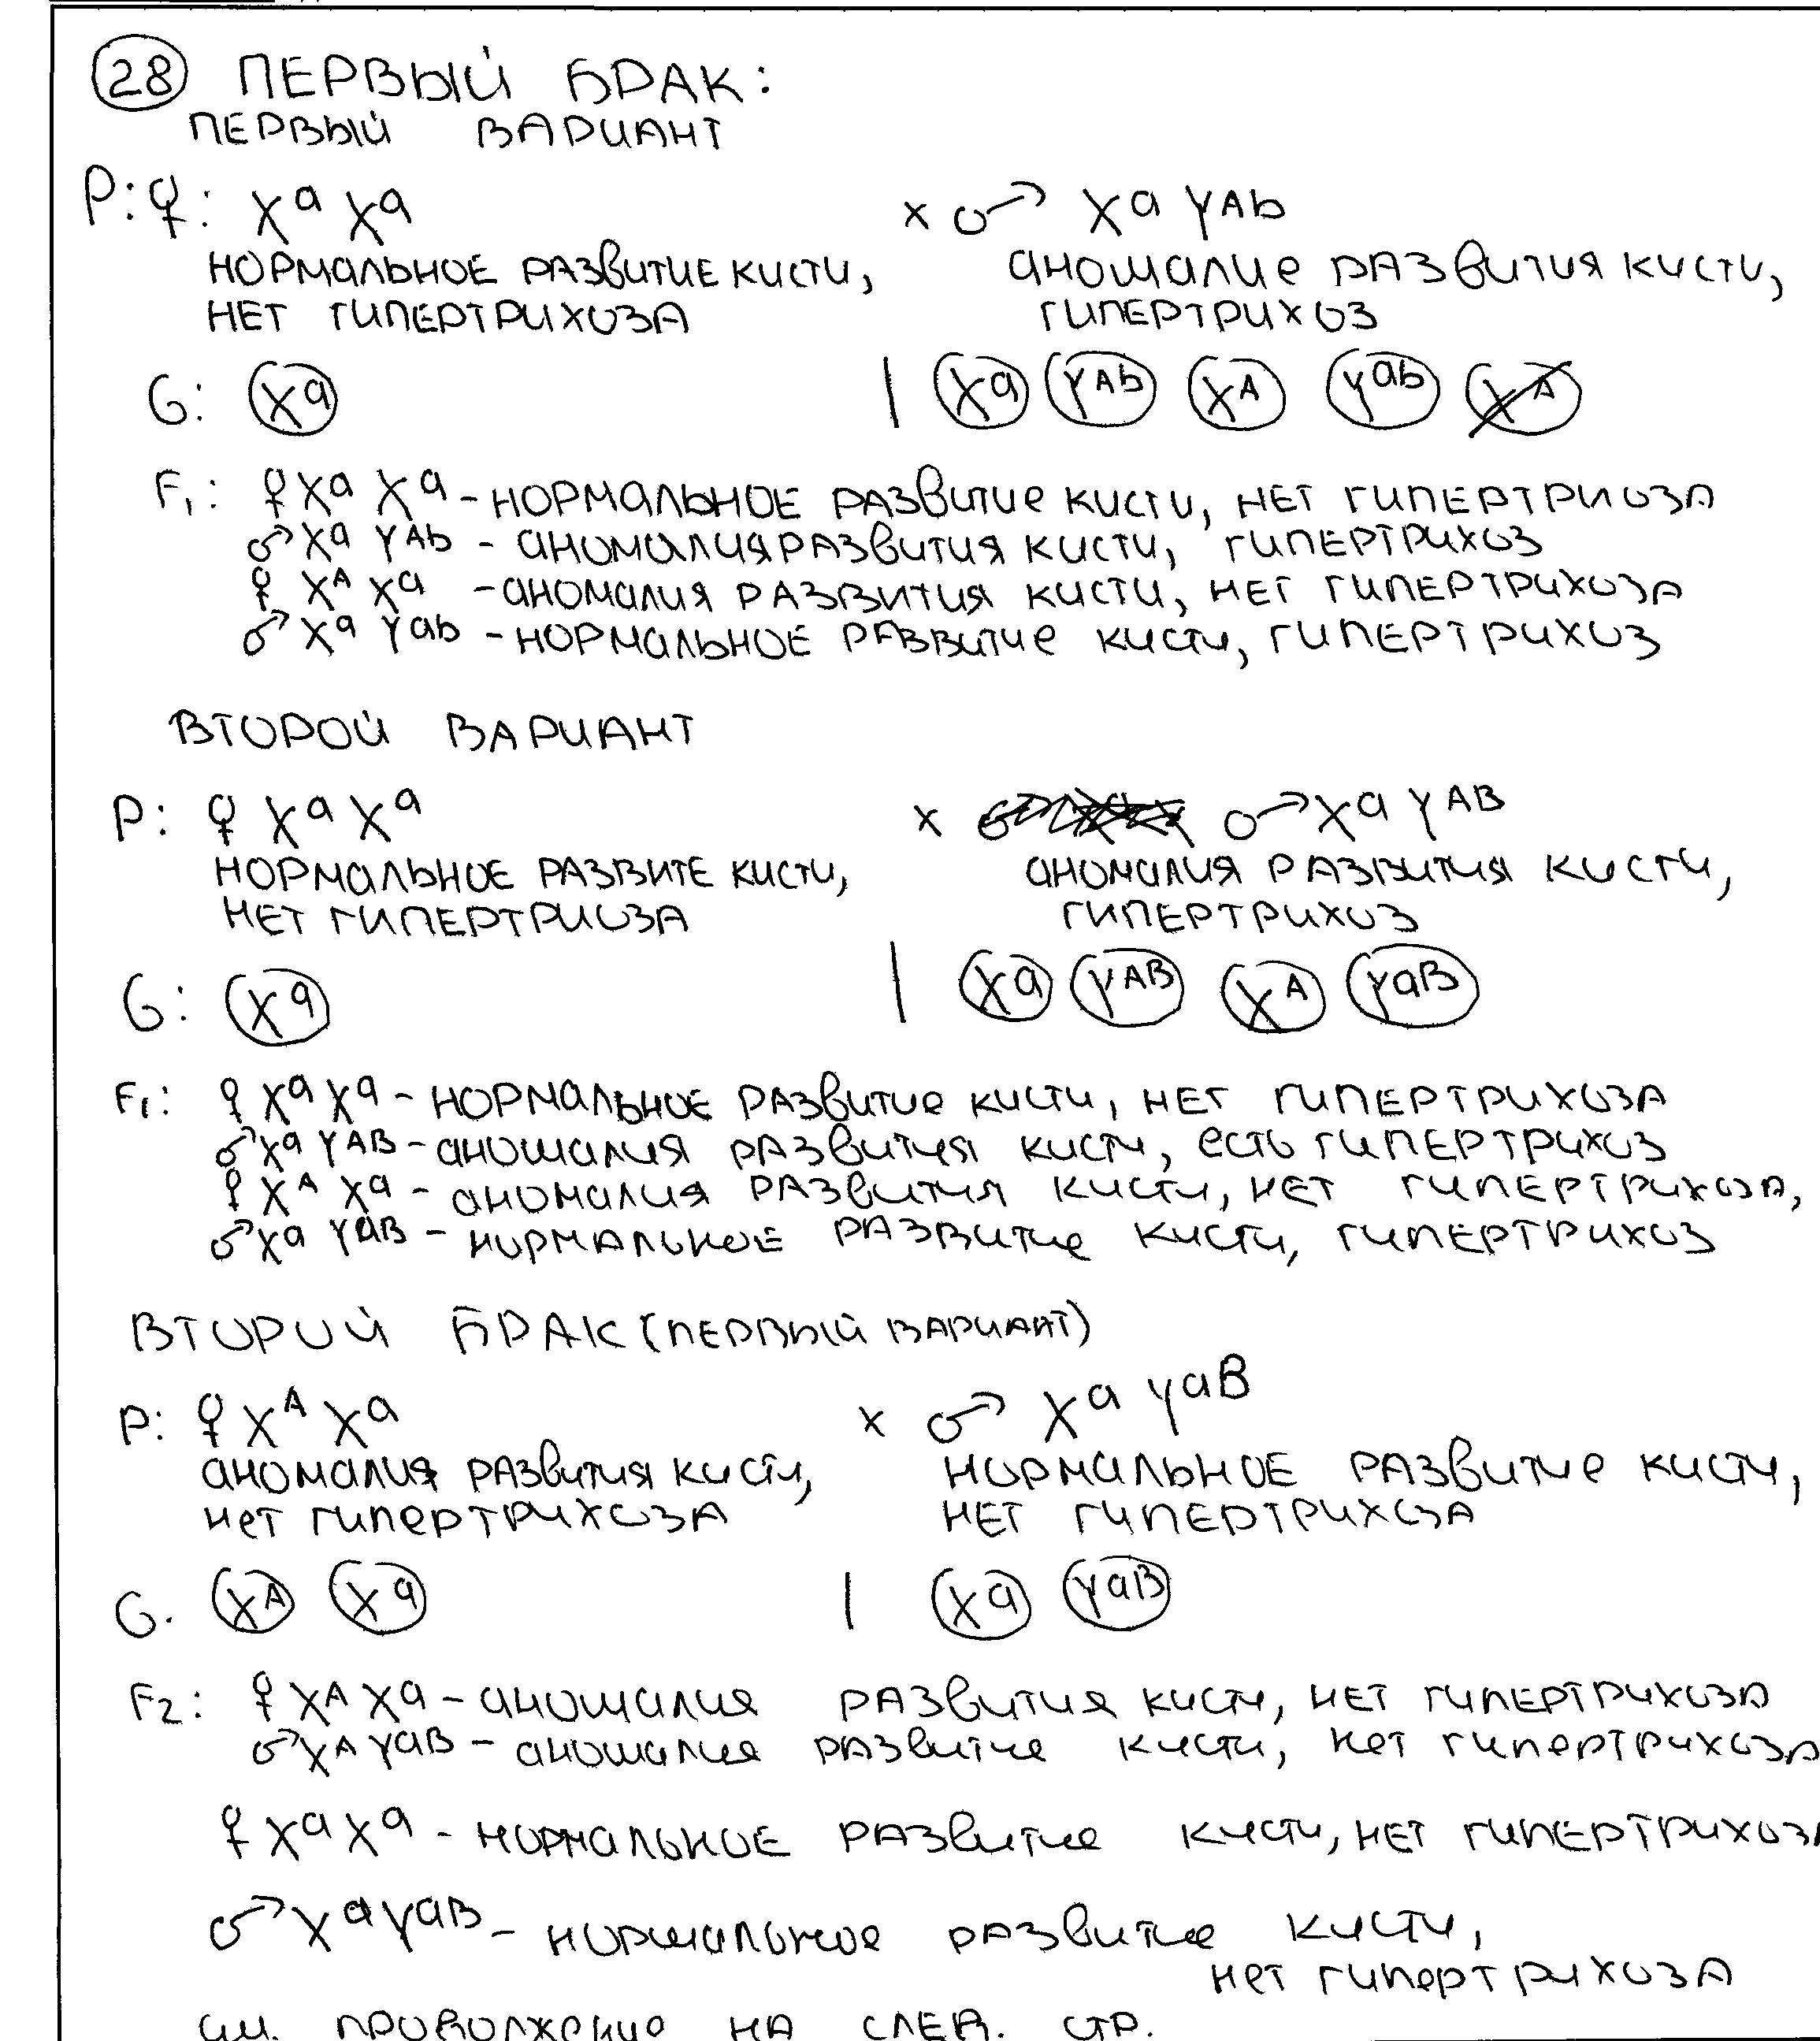 28 ПЕРВЫЙ БРАК:
ПЕРВЫЙ ВАРИАНТ
P: ♀: Xᵃ Xᵃ × ♂ Xᵃ Yᴬᵇ
НОРМАЛЬНОЕ РАЗВИТИЕ КИСТИ, аномалие РАЗВИТИЯ КИСТИ,
НЕТ ГИПЕРТРИХОЗА ГИПЕРТРИХОЗ
G: Xᵃ | Xᵃ Yᴬᵇ Xᴬ Yᵃᵇ
F₁: ♀ Xᵃ Xᵃ - НОРМАЛЬНОЕ РАЗВИТИЕ КИСТИ, НЕТ ГИПЕРТРИОЗА
♂ Xᵃ Yᴬᵇ - аНОМАЛИЯ РАЗВИТИЯ КИСТИ, ГИПЕРТРИХОЗ
♀ Xᴬ Xᵃ - аНОМАЛИЯ РАЗВИТИЯ КИСТИ, НЕТ ГИПЕРТРИХОЗА
♂ Xᵃ Yᵃᵇ - НОРМАЛЬНОЕ РАЗВИТИЕ КИСТИ, ГИПЕРТРИХОЗ
ВТОРОЙ ВАРИАНТ
P: ♀ Xᵃ Xᵃ × ♂ Xᵃ Yᴬᴮ
НОРМАЛЬНОЕ РАЗВИТЕ КИСТИ, аНОМАЛИЯ РАЗВИТИЯ КИСТИ,
НЕТ ГИПЕРТРИОЗА ГИПЕРТРИХОЗ
G: Xᵃ | Xᵃ Yᴬᴮ Xᴬ Yᵃᴮ
F₁: ♀ Xᵃ Xᵃ - НОРМАЛЬНОЕ РАЗВИТИЕ КИСТИ, НЕТ ГИПЕРТРИХОЗА
♂ Xᵃ Yᴬᴮ - аномалия РАЗВИТИЯ КИСТИ, есть ГИПЕРТРИХОЗ
♀ Xᴬ Xᵃ - аНОМАЛИЯ РАЗВИТИЯ КИСТИ, НЕТ ГИПЕРТРИХОЗА,
♂ Xᵃ Yᵃᴮ - НОРМАЛЬНОЕ РАЗВИТИЕ КИСТИ, ГИПЕРТРИХОЗ
ВТОРОЙ БРАК (ПЕРВЫЙ ВАРИАНТ)
P: ♀ Xᴬ Xᵃ × ♂ Xᵃ Yᵃᴮ
аНОМАЛИЯ РАЗВИТИЯ КИСТИ, НОРМАЛЬНОЕ РАЗВИТИЕ КИСТИ,
нет ГИПЕРТРИХОЗА НЕТ ГИПЕРТРИХОЗА
G. Xᴬ Xᵃ | Xᵃ Yᵃᴮ
F₂: ♀ Xᴬ Xᵃ - аномалия РАЗВИТИЯ КИСТИ, НЕТ ГИПЕРТРИХОЗА
♂ Xᴬ Yᵃᴮ - аномалие РАЗВИТИЕ КИСТИ, нет ГИПЕРТРИХОЗА
♀ Xᵃ Xᵃ - НОРМАЛЬНОЕ РАЗВИТИЕ КИСТИ, НЕТ ГИПЕРТРИХОЗА
♂ Xᵃ Yᵃᴮ - нормальное РАЗВИТИЕ КИСТИ,
нет ГИПЕРТРИХОЗА
см. ПРОДОЛЖЕНИЕ НА СЛЕД. СТР.